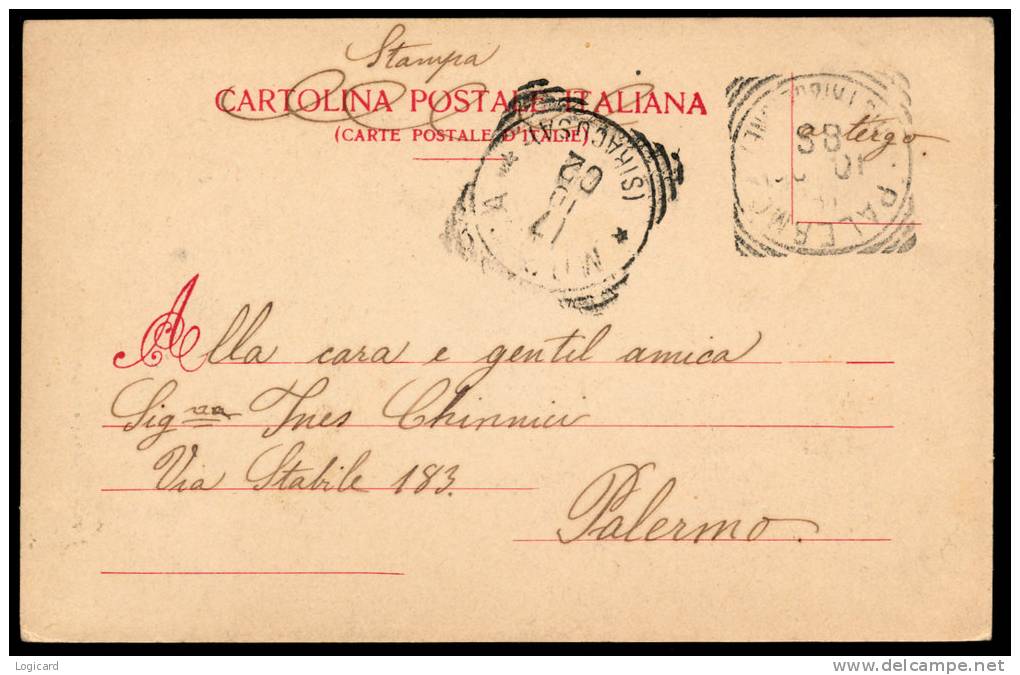 Stampa
CARTOLINA POSTALE ITALIANA
(CARTE POSTALE D'ITALIE)
(SIRACUSA)
02
17
PALERMO
a tergo.
Alla cara e gentil amica
Sig.na Ines Chinnici
Via Stabile 183.
Palermo
Logicard
www.delcampe.net